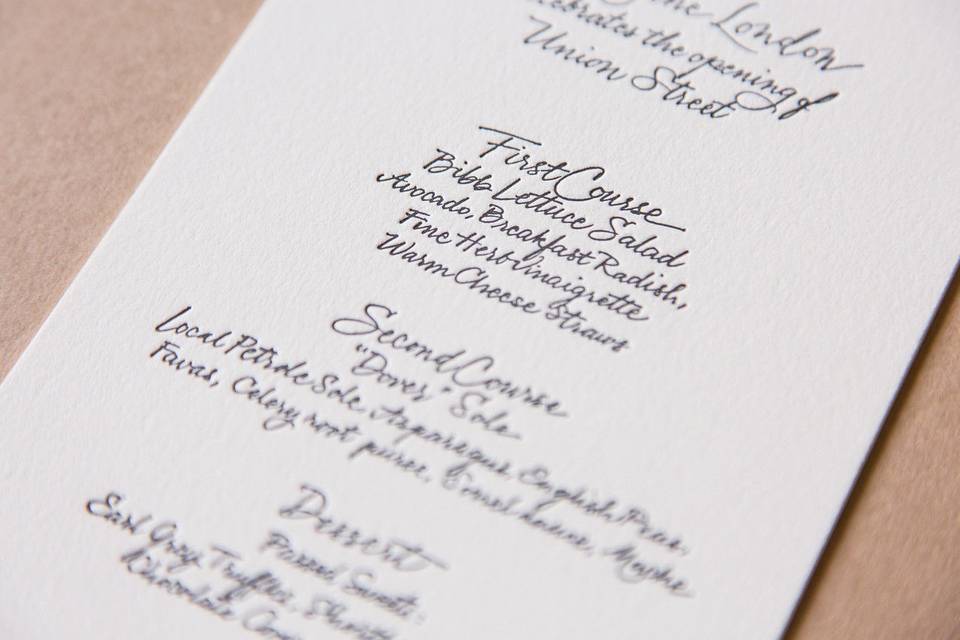 the London
celebrates the opening of
Union Street
First Course
Bibb Lettuce Salad
Avocado, Breakfast Radish,
Fine Herb Vinaigrette
Warm Cheese Straws
Second Course
"Dover" Sole
Local Petrale Sole, Asparagus, English Peas,
Favas, Celery root puree,
Dessert
Passed Sweets:
Earl Grey Truffles,
Chocolate